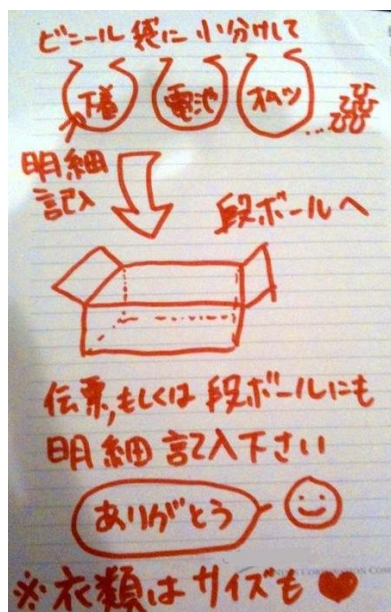 ビニール袋に小分けして
下着 電池 オムツ
…
明細
記入
段ボールへ
伝票,もしくは段ボールにも
明細記入下さい
ありがとう
※衣類はサイズも♥